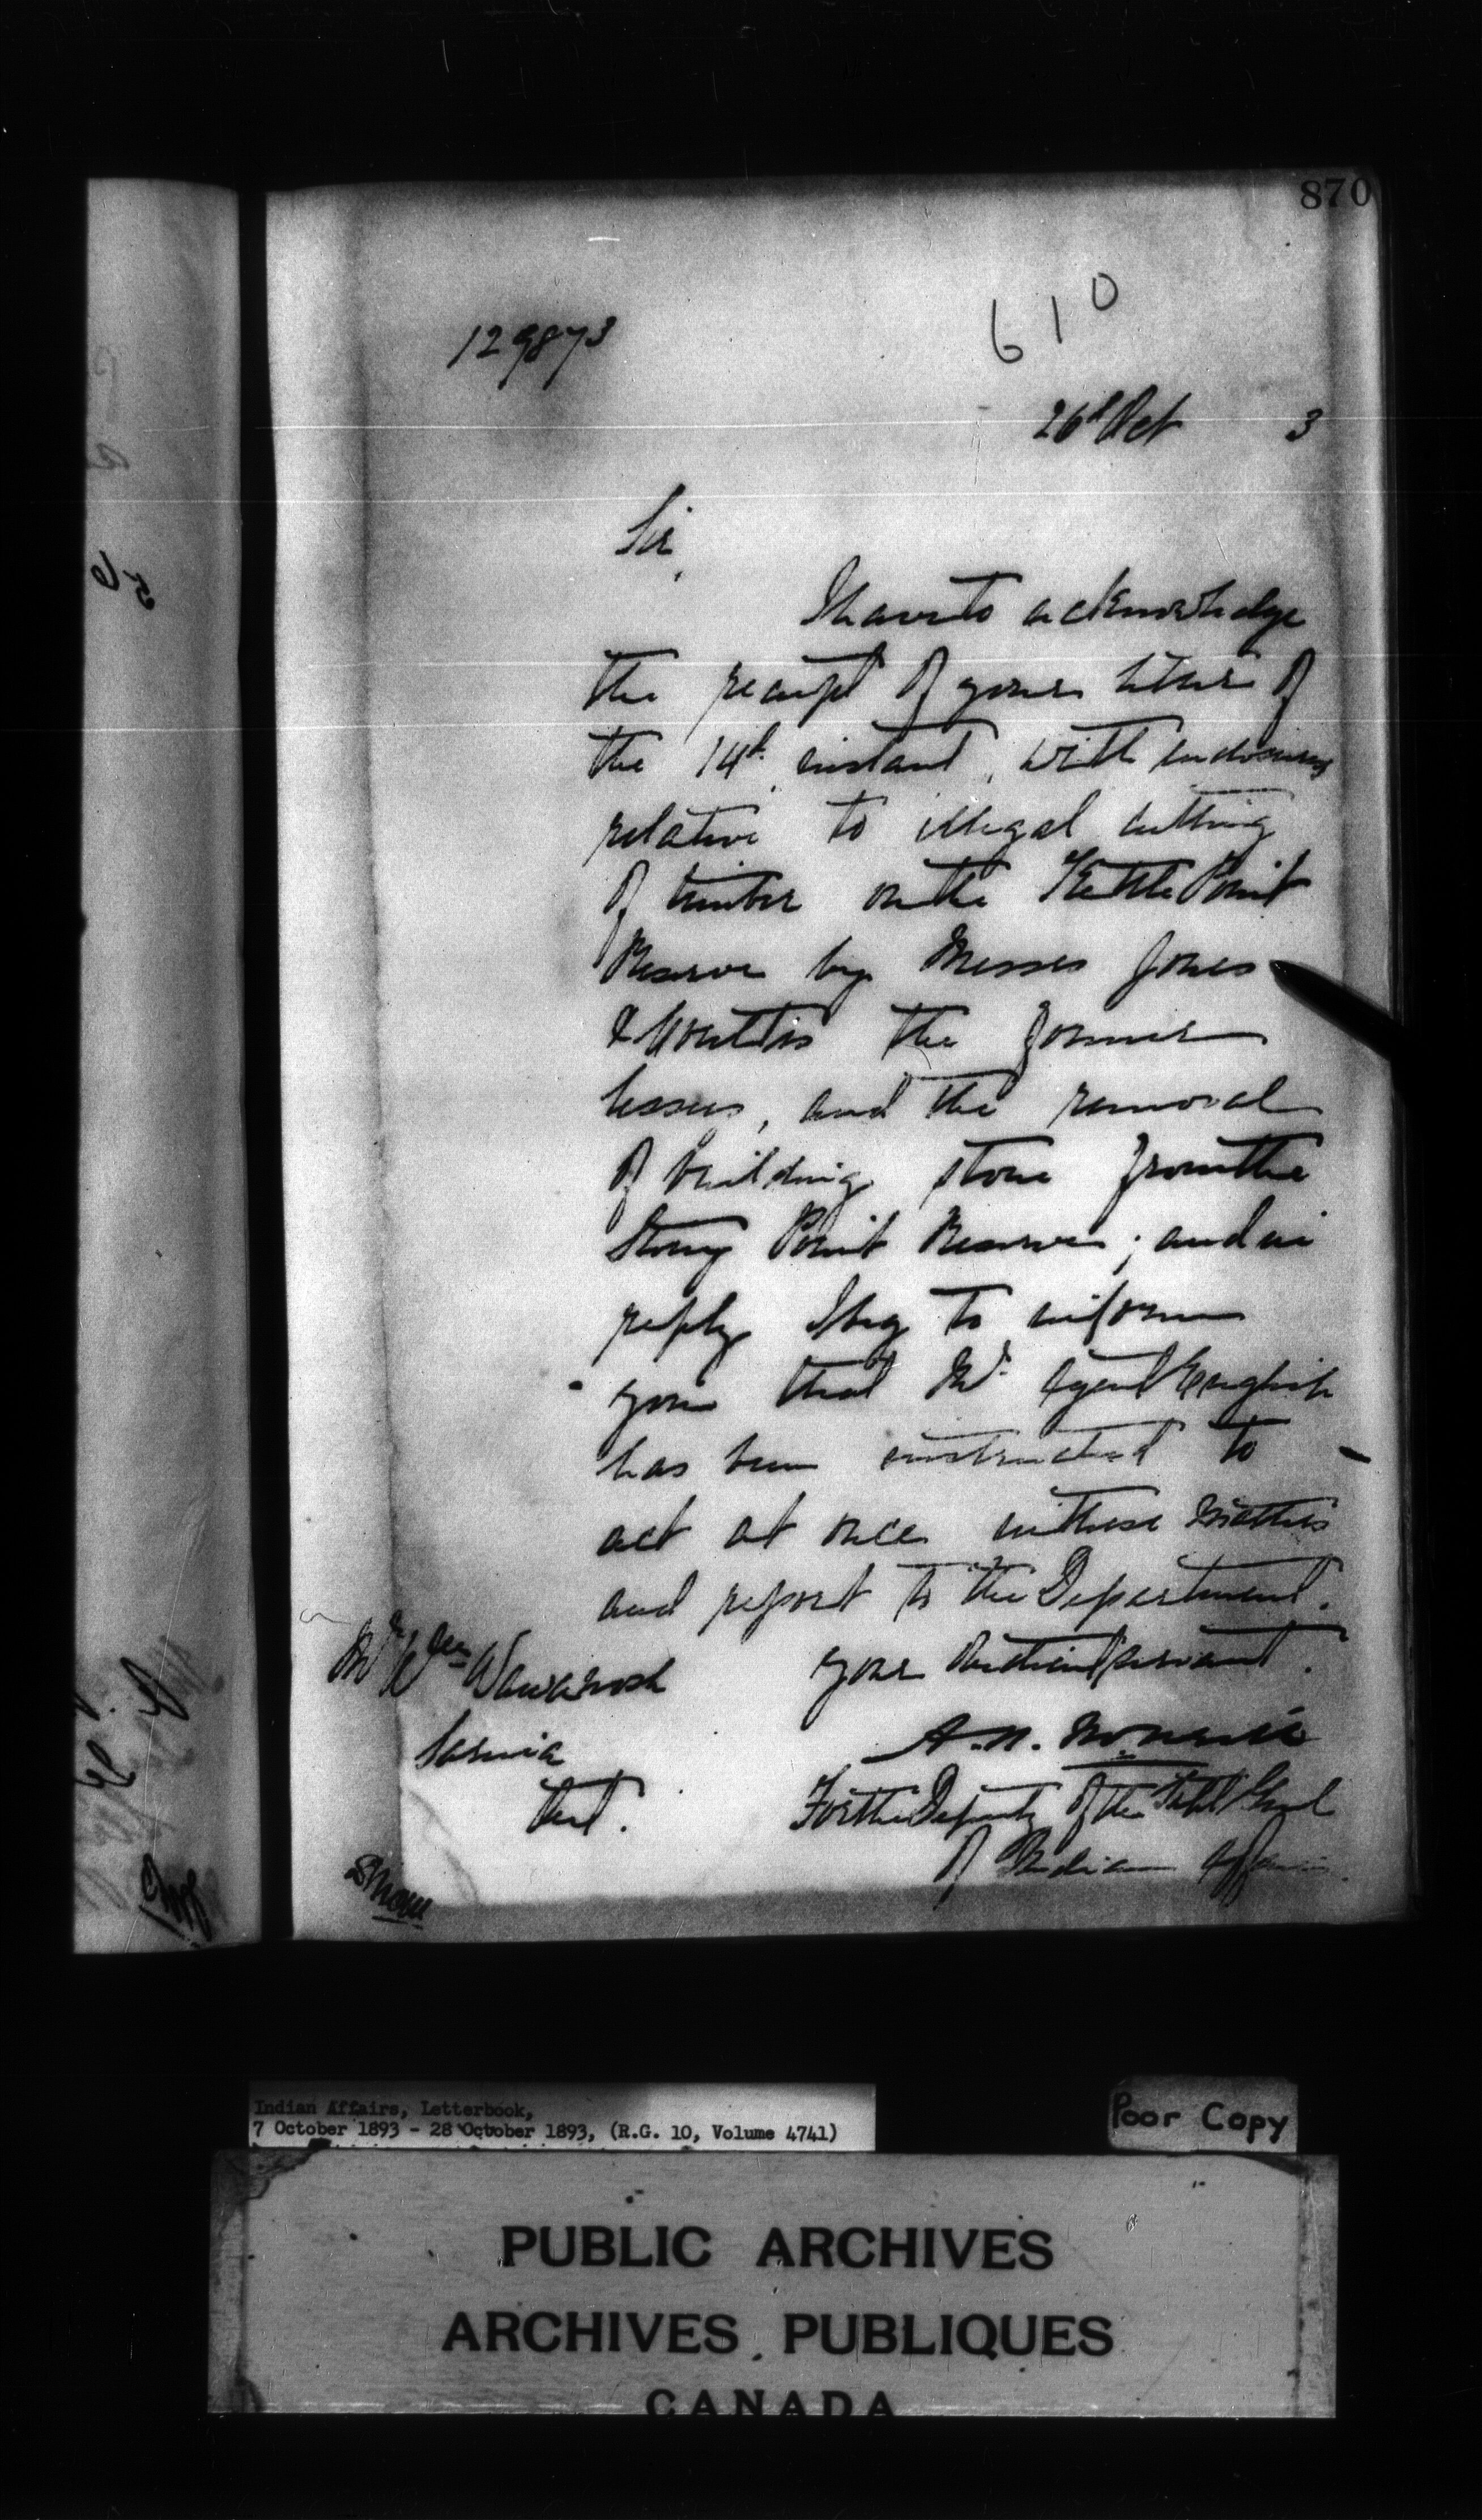 870
610
129873
26th Oct 3
Sir,
I have to acknowledge
the receipt of your letter of
the 14th instant, with enclosures
relative to illegal cutting
of timber on the Kettle Point
Reserve by Messrs Jones
& the former
lessees, and the removal
of building stone from the
Stony Point Reserve; and in
reply I beg to inform
you that Mr. Agent English
has been instructed to
act at once in these matters
and report to the Department.
Your obedient servant.
Mr Wm Wawanosh
Sarnia
Ont.
A. N. McNeill
For the Deputy of the Supt Genl
of Indian Affairs.
Indian Affairs, Letterbook,
7 October 1893 - 28 October 1893, (R.G. 10, Volume 4741)
Poor Copy
PUBLIC ARCHIVES
ARCHIVES PUBLIQUES
CANADA